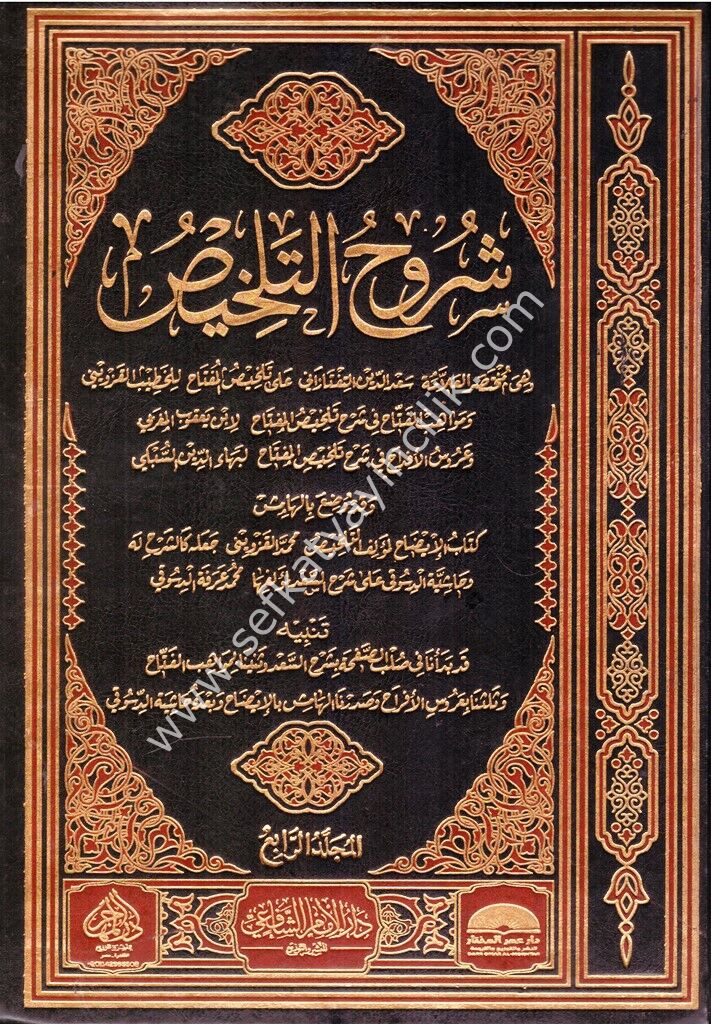 شروح التلخيص
هي مختصر العلامة سعد الدين التفتازاني على تلخيص المفتاح للخطيب القزويني
ومواهب الفتاح في شرح تلخيص المفتاح لابن يعقوب المغربي
وعروس الأفراح في شرح تلخيص المفتاح لبهاء الدين السبكي
وقد وضع بالهامش
كتاب الإيضاح لمؤلف التلخيص محمد القزويني جعله كالشرح له
وحاشية الدسوقي على شرح السعد لمؤلفها محمد عرفة الدسوقي
تنبيه
قد بدأنا في صلب الصفحة بشرح السعد وثنينا بمواهب الفتاح
وثلثنا بعروس الأفراح وصدرنا الهامش بالإيضاح وبعده حاشية الدسوقي
المجلد الرابع
دار الإمام الشافعي
للنشر والتوزيع
دار عمر المختار
للنشر والتوزيع والترجمة
DAR OMAR AL-MOKHTAR
www.serkatyayincilik.com